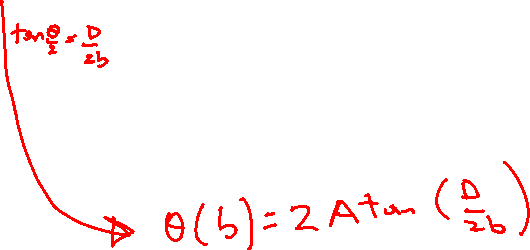 tan θ/2 = D/2b
θ(b) = 2 Atan (D/2b)